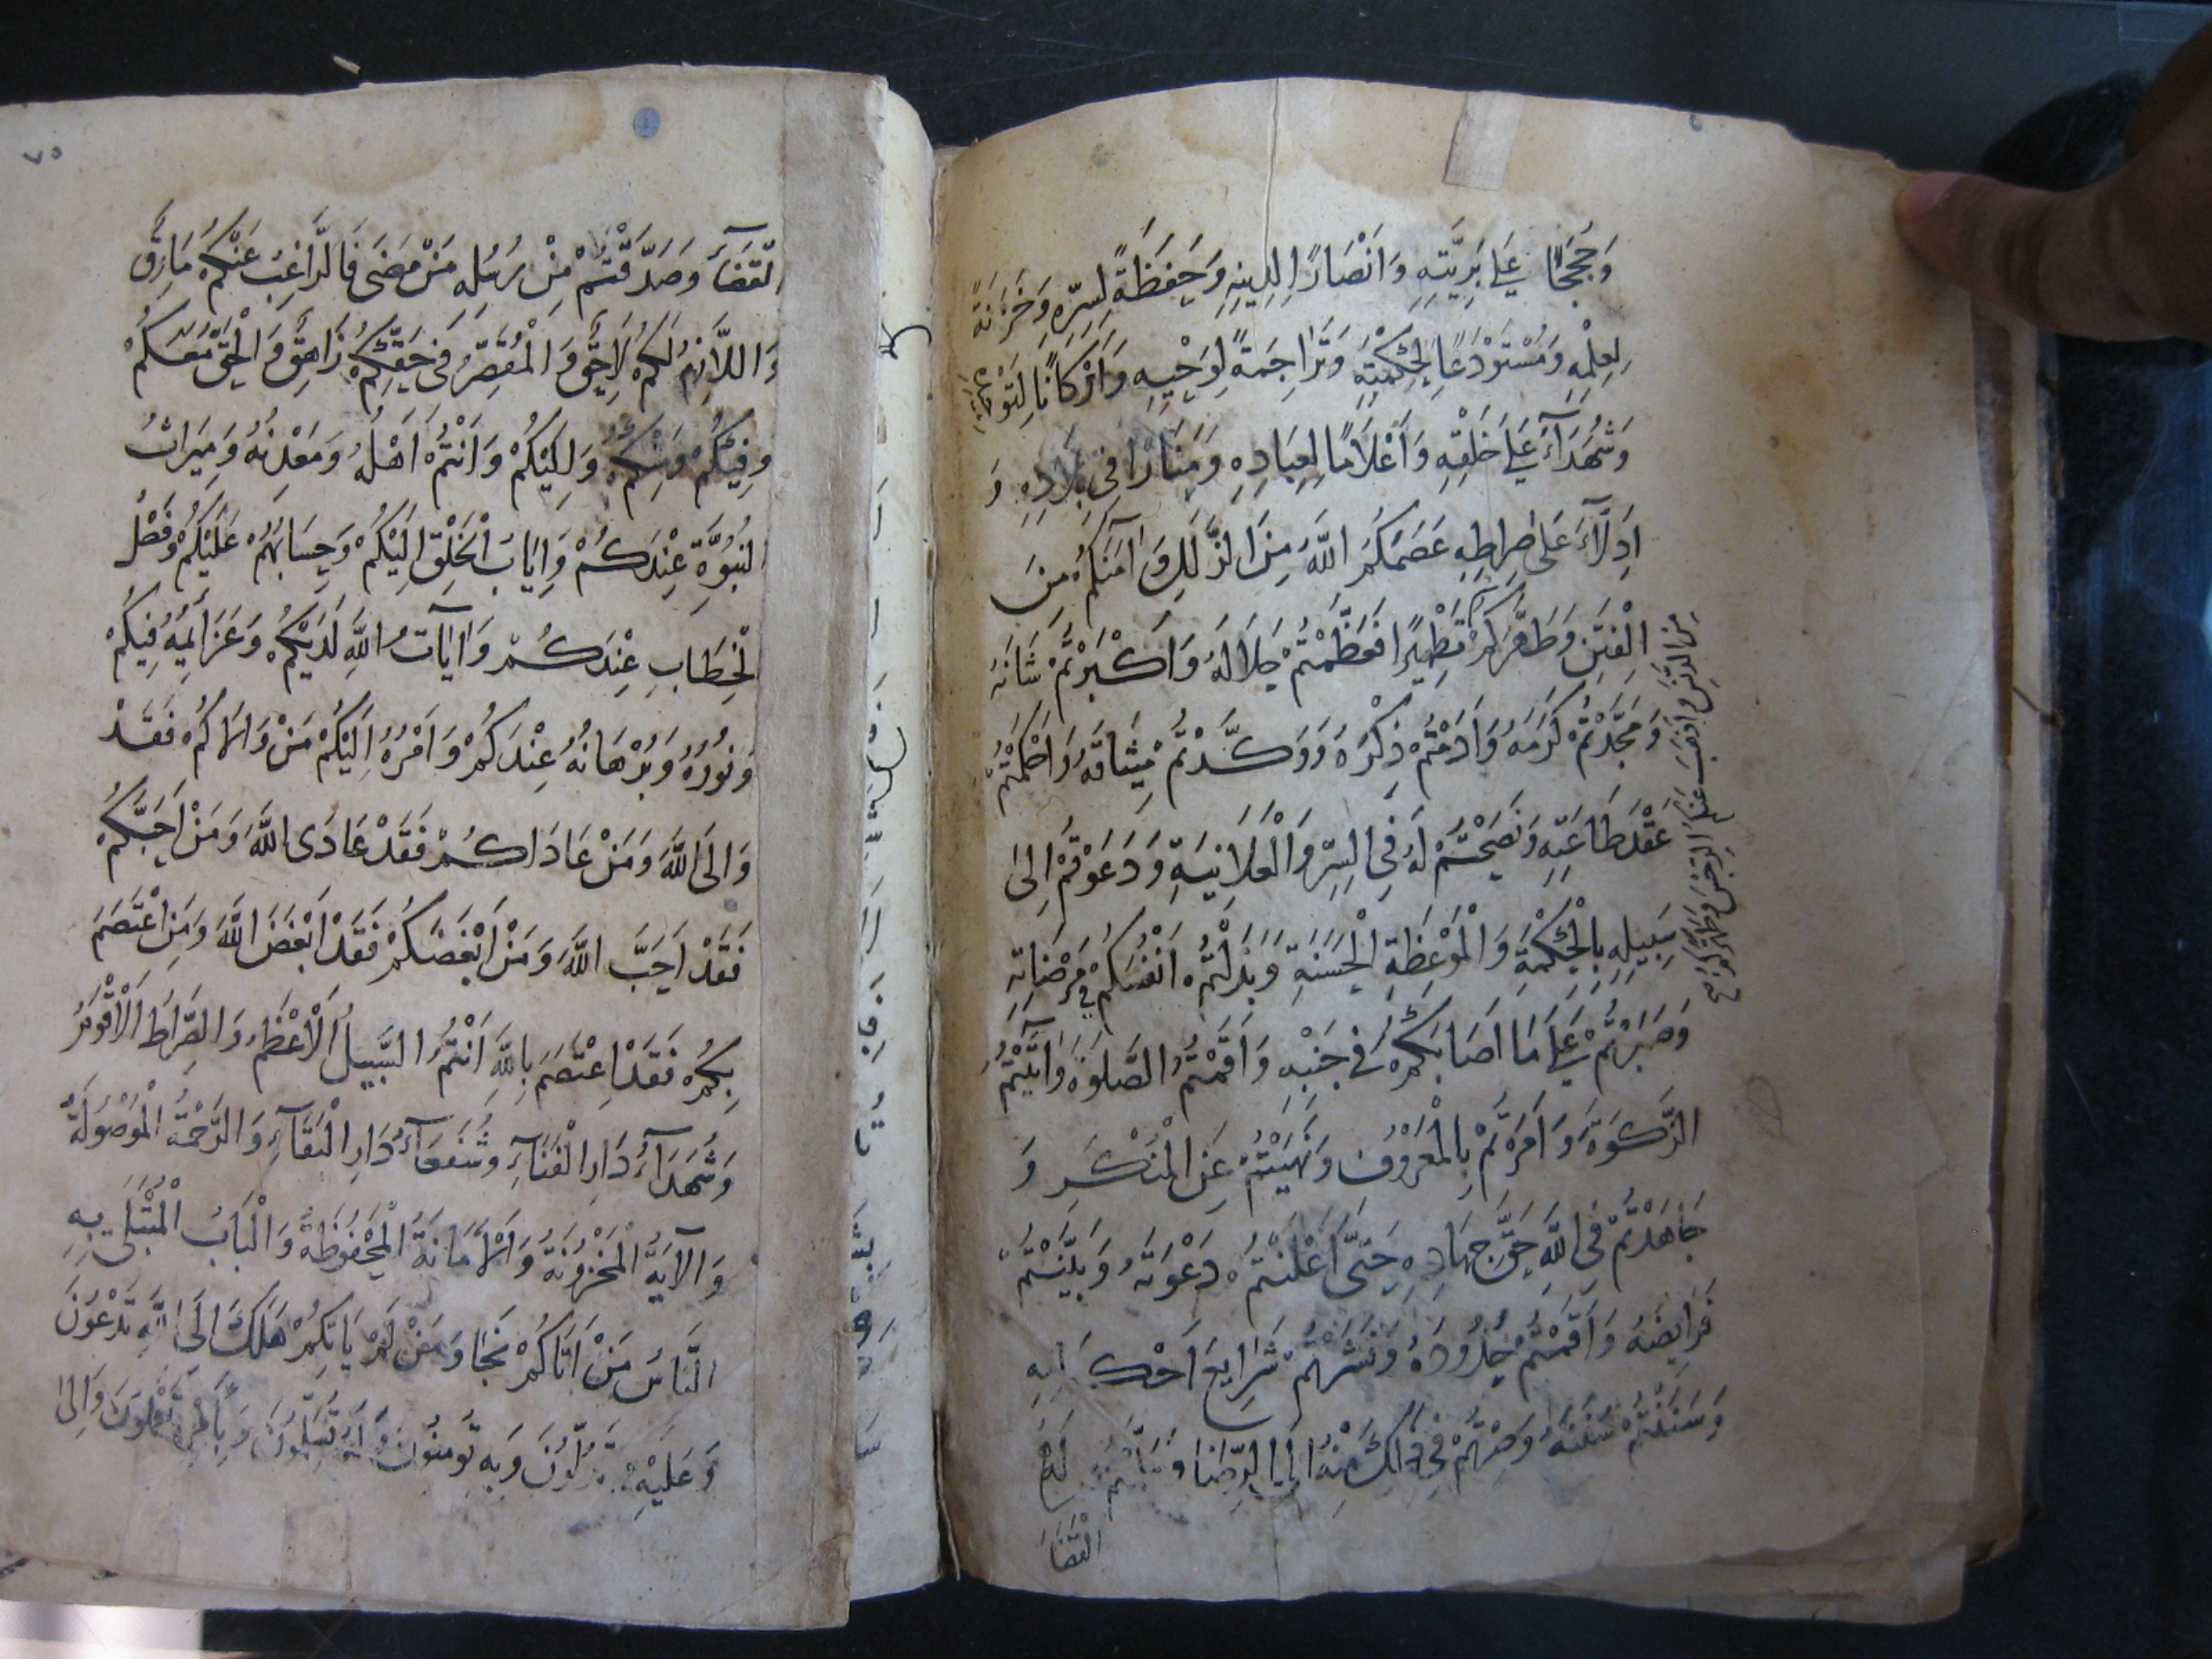 وَحُجَجًا عَلَى بَرِيَّتِهِ وَاَنْصَارًا لِدِينِهِ وَحَفَظَةً لِسِرِّهِ وَخَزَنَةً
لِعِلْمِهِ وَمُسْتَوْدَعًا لِحِكْمَتِهِ وَتَرَاجِمَةً لِوَحْيِهِ وَاَرْكَانًا لِتَوْحِيدِهِ
وَشُهَدَآءَ عَلَى خَلْقِهِ وَاَعْلَامًا لِعِبَادِهِ وَمَنَارًا فِى بِلَادِهِ وَ
اَدِلَّآءَ عَلَى صِرَاطِهِ عَصَمَكُمُ اللّٰهُ مِنَ الزَّلَلِ وَآمَنَكُمْ مِنَ
الْفِتَنِ وَطَهَّرَكُمْ تَطْهِيرًا فَعَظَّمْتُمْ جَلَالَهُ وَاَكْبَرْتُمْ شَانَهُ
وَمَجَّدْتُمْ كَرَمَهُ وَاَدَمْتُمْ ذِكْرَهُ وَوَكَّدْتُمْ مِيثَاقَهُ وَاَحْكَمْتُمْ
عَقْدَ طَاعَتِهِ وَنَصَحْتُمْ لَهُ فِى السِّرِّ وَالْعَلَانِيَةِ وَدَعَوْتُمْ اِلَى
سَبِيلِهِ بِالْحِكْمَةِ وَالْمَوْعِظَةِ الْحَسَنَةِ وَبَذَلْتُمْ اَنْفُسَكُمْ فِى مَرْضَاتِهِ
وَصَبَرْتُمْ عَلَى مَا اَصَابَكُمْ فِى جَنْبِهِ وَاَقَمْتُمُ الصَّلٰوةَ وَاٰتَيْتُمُ
الزَّكٰوةَ وَاَمَرْتُمْ بِالْمَعْرُوفِ وَنَهَيْتُمْ عَنِ الْمُنْكَرِ وَ
جَاهَدْتُمْ فِى اللّٰهِ حَقَّ جِهَادِهِ حَتَّى اَعْلَنْتُمْ دَعْوَتَهُ وَبَيَّنْتُمْ
فَرَايِضَهُ وَاَقَمْتُمْ حُدُودَهُ وَنَشَرْتُمْ شَرَايِعَ اَحْكَامِهِ
وَسَنَنْتُمْ سُنَّتَهُ وَصِرْتُمْ فِى ذٰلِكَ مِنْهُ اِلَى الرِّضَا وَسَلَّمْتُمْ لَهُ
الْقَضَآءَ
مِنَ الدَّنَسِ وَاَذْهَبَ عَنْكُمُ الرِّجْسَ وَطَهَّرَكُمْ
الْقَضَآءَ وَصَدَّقْتُمْ مِنْ رُسُلِهِ مَنْ مَضَى فَالرَّاغِبُ عَنْكُمْ مَارِقٌ
وَاللَّازِمُ لَكُمْ لَاحِقٌ وَالْمُقَصِّرُ فِى حَقِّكُمْ زَاهِقٌ وَالْحَقُّ مَعَكُمْ
وَفِيكُمْ وَمِنْكُمْ وَاِلَيْكُمْ وَاَنْتُمْ اَهْلُهُ وَمَعْدِنُهُ وَمِيرَاثُ
النُّبُوَّةِ عِنْدَكُمْ وَاِيَابُ الْخَلْقِ اِلَيْكُمْ وَحِسَابُهُمْ عَلَيْكُمْ وَفَصْلُ
الْخِطَابِ عِنْدَكُمْ وَاٰيَاتُ اللّٰهِ لَدَيْكُمْ وَعَزَايِمُهُ فِيكُمْ
وَنُورُهُ وَبُرْهَانُهُ عِنْدَكُمْ وَاَمْرُهُ اِلَيْكُمْ مَنْ وَالَاكُمْ فَقَدْ
وَالَى اللّٰهَ وَمَنْ عَادَاكُمْ فَقَدْ عَادَى اللّٰهَ وَمَنْ اَحَبَّكُمْ
فَقَدْ اَحَبَّ اللّٰهَ وَمَنْ اَبْغَضَكُمْ فَقَدْ اَبْغَضَ اللّٰهَ وَمَنِ اعْتَصَمَ
بِكُمْ فَقَدْ اعْتَصَمَ بِاللّٰهِ اَنْتُمُ السَّبِيلُ الْاَعْظَمُ وَالصِّرَاطُ الْاَقْوَمُ
وَشُهَدَآءُ دَارِ الْفَنَآءِ وَشُفَعَآءُ دَارِ الْبَقَآءِ وَالرَّحْمَةُ الْمَوْصُولَةُ
وَالْآيَةُ الْمَخْزُونَةُ وَالْاَمَانَةُ الْمَحْفُوظَةُ وَالْبَابُ الْمُبْتَلَى بِهِ
النَّاسُ مَنْ اَتَاكُمْ نَجَا وَمَنْ لَمْ يَاتِكُمْ هَلَكَ اِلَى اللّٰهِ تَدْعُونَ
وَعَلَيْهِ تَدُلُّونَ وَبِهِ تُومِنُونَ وَلَهُ تُسَلِّمُونَ وَبِاَمْرِهِ تَعْمَلُونَ وَاِلَى
٧٥